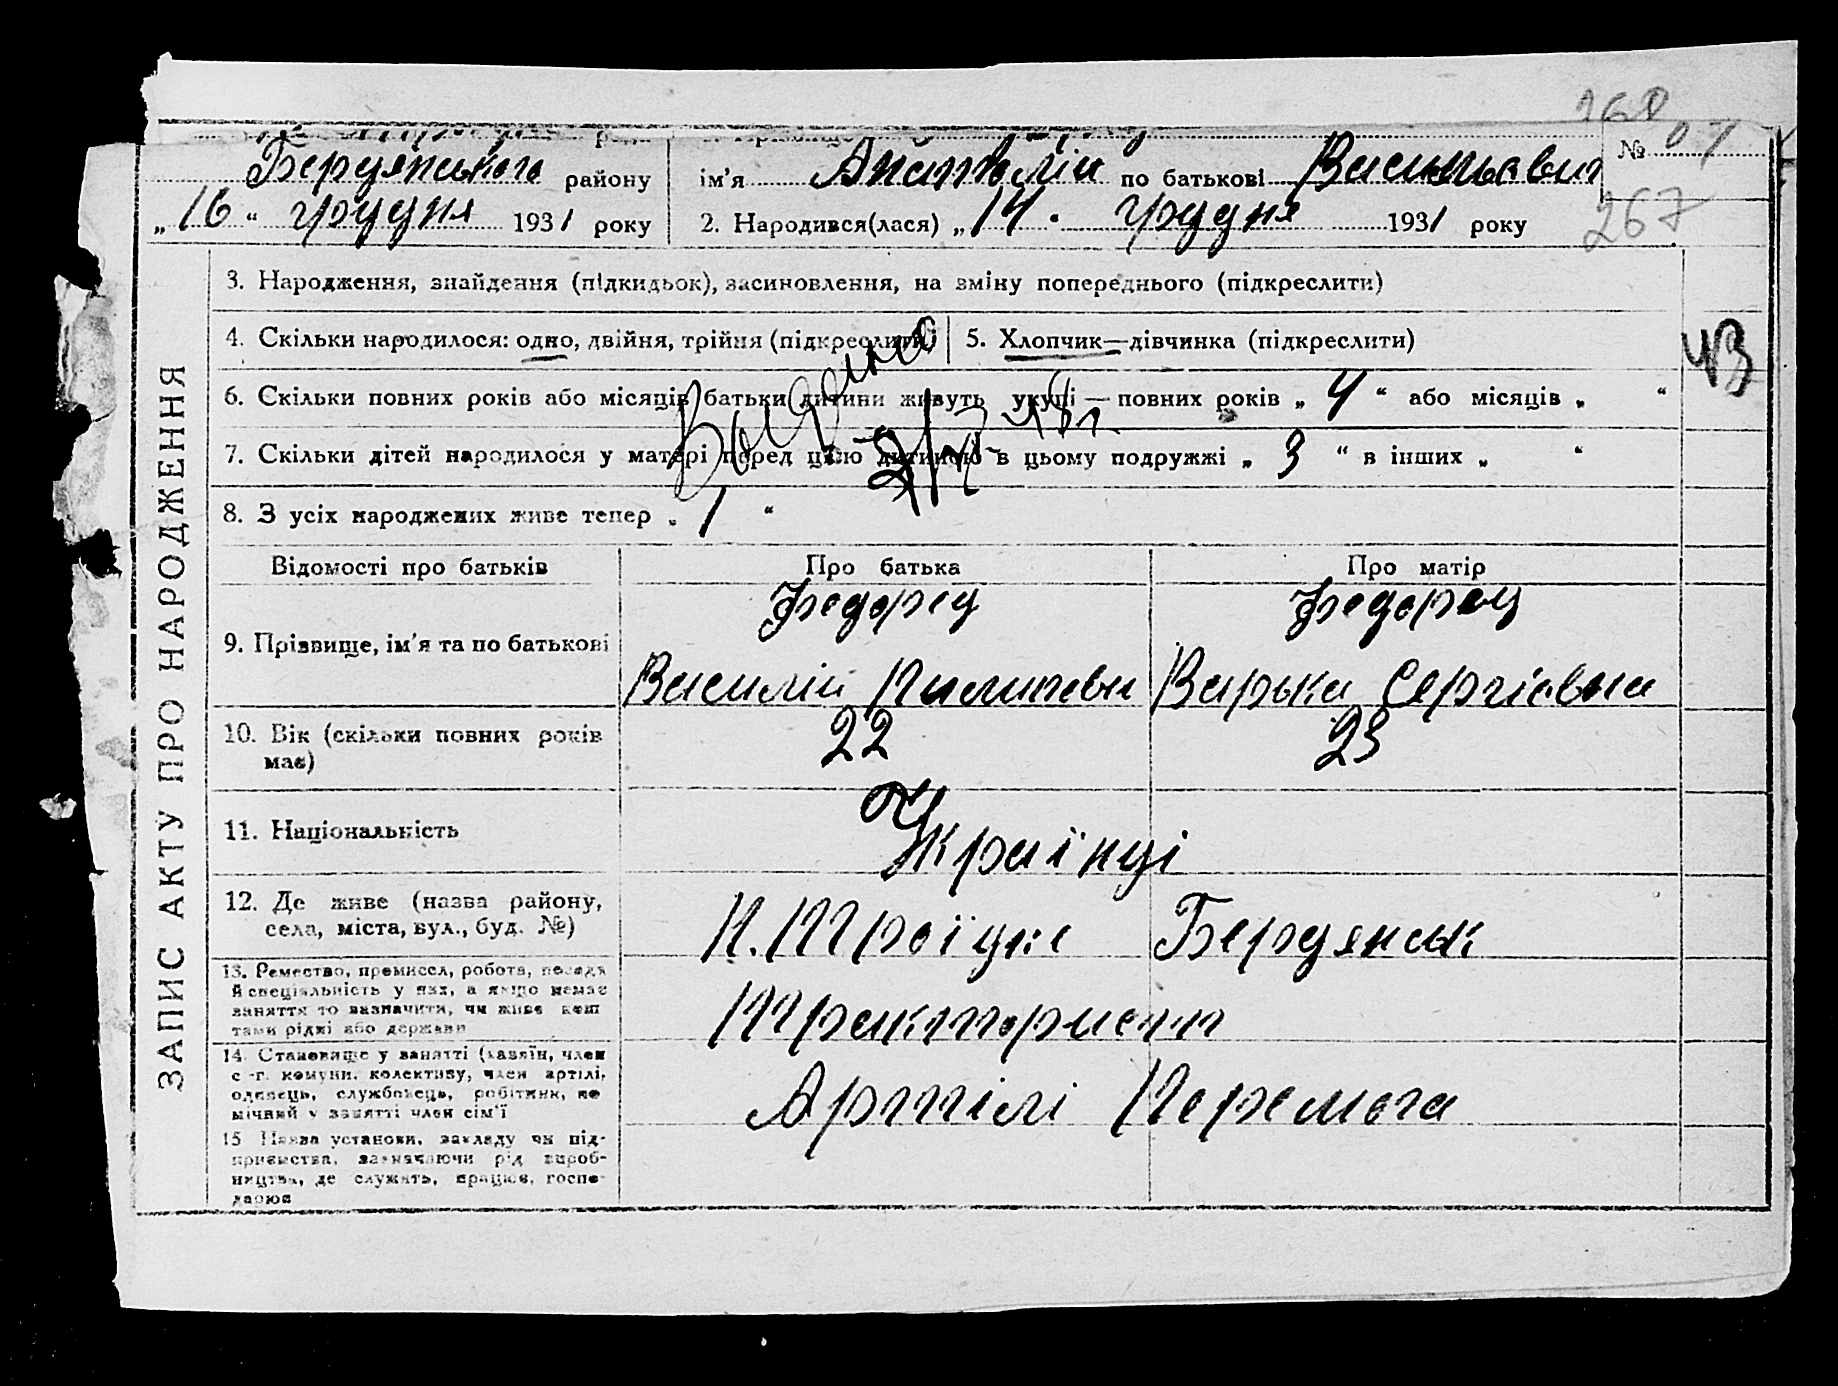 260
Бердянського району
ім'я Анатолій по батькові Васильович
№ 07
„ 16 “ грудня 1931 року
2. Народився(лася) „ 14 . грудня 1931 року
267
ЗАПИС АКТУ ПРО НАРОДЖЕННЯ
3. Народження, знайдення (підкидьок), засиновлення, на зміну попереднього (підкреслити)
4. Скільки народилося: одно, двійня, трійня (підкреслити)
5. Хлопчик—дівчинка (підкреслити)
43
6. Скільки повних років або місяців батьки дитини живуть укупі — повних років „ 4 “ або місяців „ “
7. Скільки дітей народилося у матері перед цією дитиною в цьому подружжі „ 3 “ в інших „ “
8. З усіх народжених живе тепер „ 1 “
Відомості про батьків
Про батька
Про матір
9. Прізвище, ім'я та по батькові
Федорец
Василій Пилипови
Федорец
Варька Сергіевна
10. Вік (скільки повних років має)
22
23
11. Національність
Українці
12. Де живе (назва району, села, міста, вул., буд. №)
Н. Троїцке Бердянськ
13. Ремество, промисел, робота, посада
й спеціяльність у них, а якщо немає
заняття то зазначити, чи живе кош
тами рідні або держави
Тракторист
14. Становище у занятті (хазяїн, член
с.-г. комуни, колективу, член артілі,
одинець, службовець, робітник, по
мічний у занятті член сім'ї
Артілі Перемога
15 Назва установи, закладу чи під-
приємства, зазначаючи рід вироб-
ництва, де служить, працює, госпо-
дарює